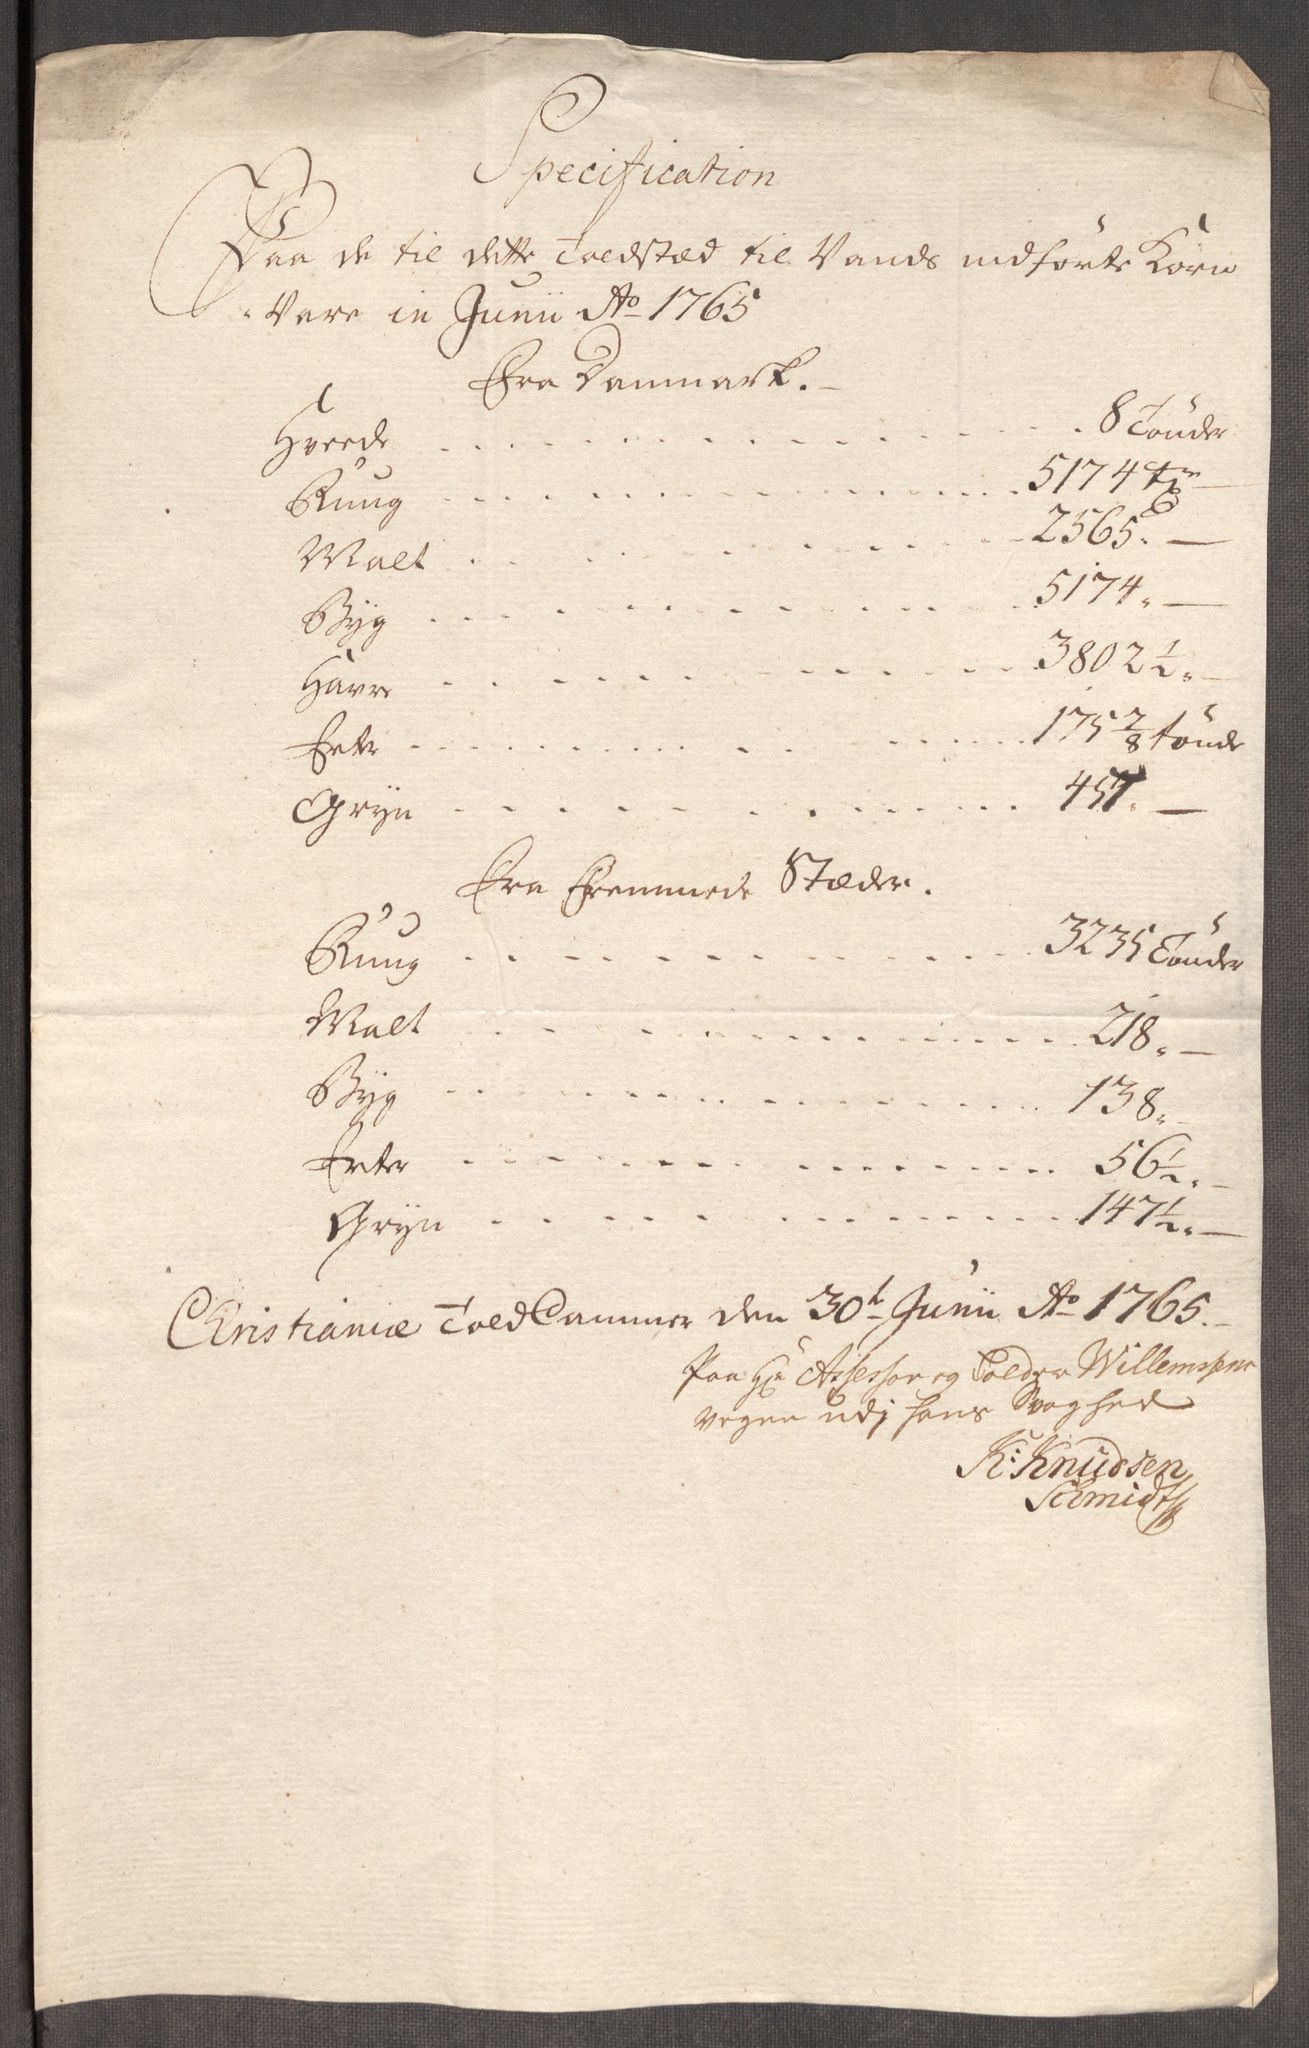 Specification
Paa de til dette Toldstæd til Vands indførte Korn
Vare in Junii Ao 1765
Fra Danmark.
Hveede . . . 8 Tønder
Rüug . . . 5174
Malt . . . 2565. —
Byg . . . 5174. —
Havre . . . 3802 1/2. —
Erter . . . 175 2/8 tønder
Gryn . . . 457. —
Fra Fremmede Stæder.
Rüug . . . 3235 Tønder
Malt . . . 218. —
Byg . . . 138. —
Erter . . . 56 1/2. —
Gryn . . . 147 1/2. —
Christianiæ Told Cammer den 30t Junii Ao 1765.
Paa Hr Assessor og Tolder Willemsens
vegne udj hans Svaghed
K: Knudsen
Schmidt